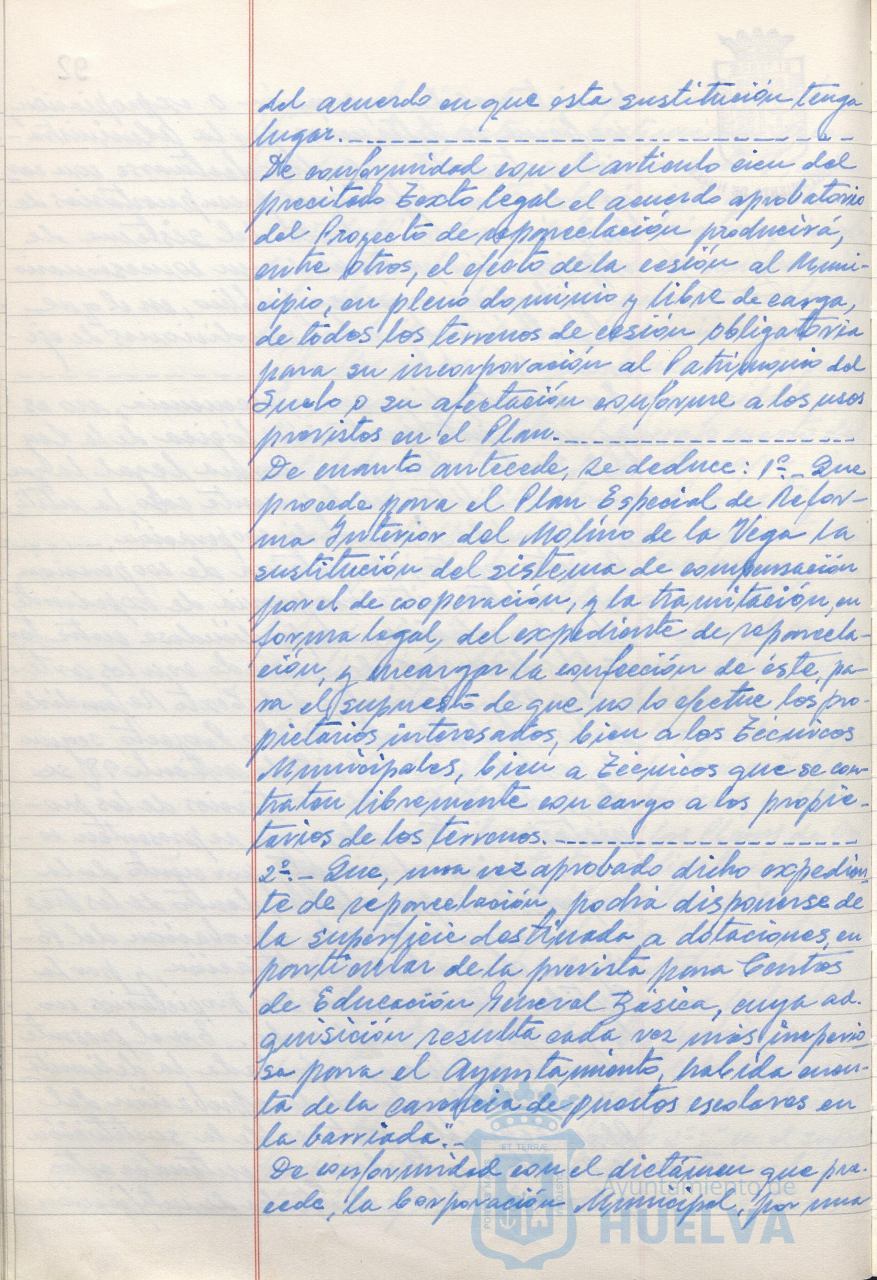 92
del acuerdo en que esta sustitución tenga
lugar.
De conformidad con el artículo cien del
precitado Texto legal el acuerdo aprobatorio
del Proyecto de reparcelación producirá,
entre otros, el efecto de la cesión al Muni-
cipio, en pleno dominio y libre de carga,
de todos los terrenos de cesión obligatoria
para su incorporación al Patrimonio del
Suelo o su afectación conforme a los usos
previstos en el Plan.
De cuanto antecede, se deduce: 1º.- Que
procede para el Plan Especial de Refor-
ma Interior del Molino de la Vega la
sustitución del sistema de compensación
por el de cooperación, y la tramitación, en
forma legal, del expediente de reparcela-
ción, y encargar la confección de éste, pa-
ra el supuesto de que no lo efectue los pro-
pietarios interesados, bien a los Técnicos
Municipales, bien a Técnicos que se con-
traten libremente con cargo a los propie-
tarios de los terrenos.
2º.- Que, una vez aprobado dicho expedien-
te de reparcelación, podrá disponerse de
la superficie destinada a dotaciones, en
particular de la prevista para Centros
de Educación General Básica, cuya ad-
quisición resulta cada vez más imperio-
sa para el Ayuntamiento, habida cuen-
ta de la carencia de puestos escolares en
la barriada".-
De conformidad con el dictámen que pre-
cede, la Corporación Municipal, por una
Ayuntamiento de
HUELVA